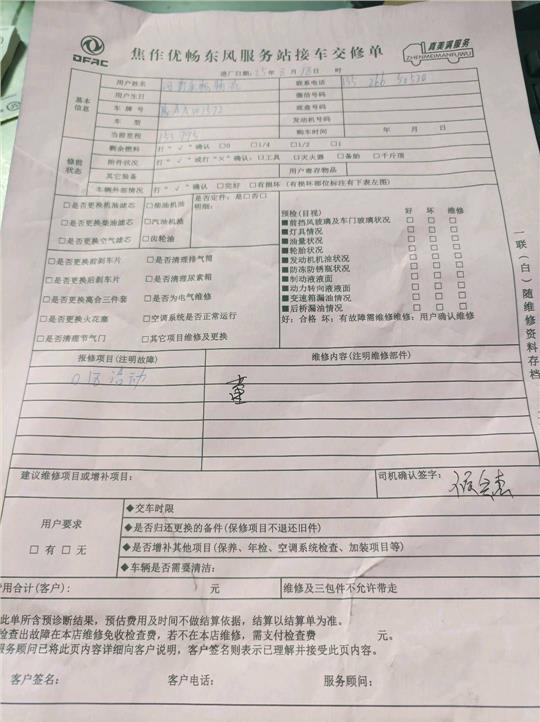 DFAC
焦作优畅东风服务站接车交修单
真美满服务
ZHENMEIMANFUWU
进厂日期: 25年 月18日 时
基本信息
用户姓名 联系电话 155 266
用户生日 微信号码
车牌号 底盘号
车型 发动机号码
当前里程 153795 购车时间 年 月 日
修前状态
剩余燃料 打"√"确认 □0 □1/4 □1/2 □1
附件状况 打"√"或打"×"确认:□工具 □灭火器 □备胎 □千斤顶
其它装备 用户寄存物品
车辆外部情况 打"√"确认 □完好 □有损坏 (有损坏部位标注有下表左图)
□是否更换机油滤芯 □柴油机油 是否定件:是□否□
□是否更换柴油滤芯 □汽油机油 明细:
□是否更换空气滤芯 □齿轮油
□是否更换前刹车片 □是否清理排气筒
□是否更换后刹车片 □是否清理尿素箱
□是否更换离合三件套 □是否为电气维修
□是否更换火花塞 □空调系统是否正常运行
□是否清理节气门 □其它项目维修及更换
预检(目视) 好 坏 维修
■前挡风玻璃及车门玻璃状况 □ □ □
■灯具情况 □ □ □
■油量状况 □ □ □
■轮胎状况 □ □ □
■发动机机油状况 □ □ □
■防冻防锈瓶状况 □ □ □
■制动液液面 □ □ □
■动力转向液液面 □ □ □
■变速箱漏油情况 □ □ □
■后桥漏油情况 □ □ □
好:合格 坏:有故障需维修维修:用户确认维修
一联(白)随维修资料存档
报修项目(注明故障) 维修内容(注明维修部件)
活动
建议维修项目或增补项目: 司机确认签字:
用户要求
□有 □无
◆交车时限
◆是否归还更换的备件(保修项目不退还旧件)
◆是否增补其他项目(保养、年检、空调系统检查、加装项目等)
◆车辆是否需要清洁:
费用合计(客户): 元 维修及三包件不允许带走
此单所含预诊断结果,预估费用及时间不做结算依据,结算以结算单为准。
检查出故障在本店维修免收检查费,若不在本店维修,需支付检查费 元。
服务顾问已将此页内容详细向客户说明,客户签名则表示已理解并接受此页内容。
客户签名: 客户电话: 服务顾问: